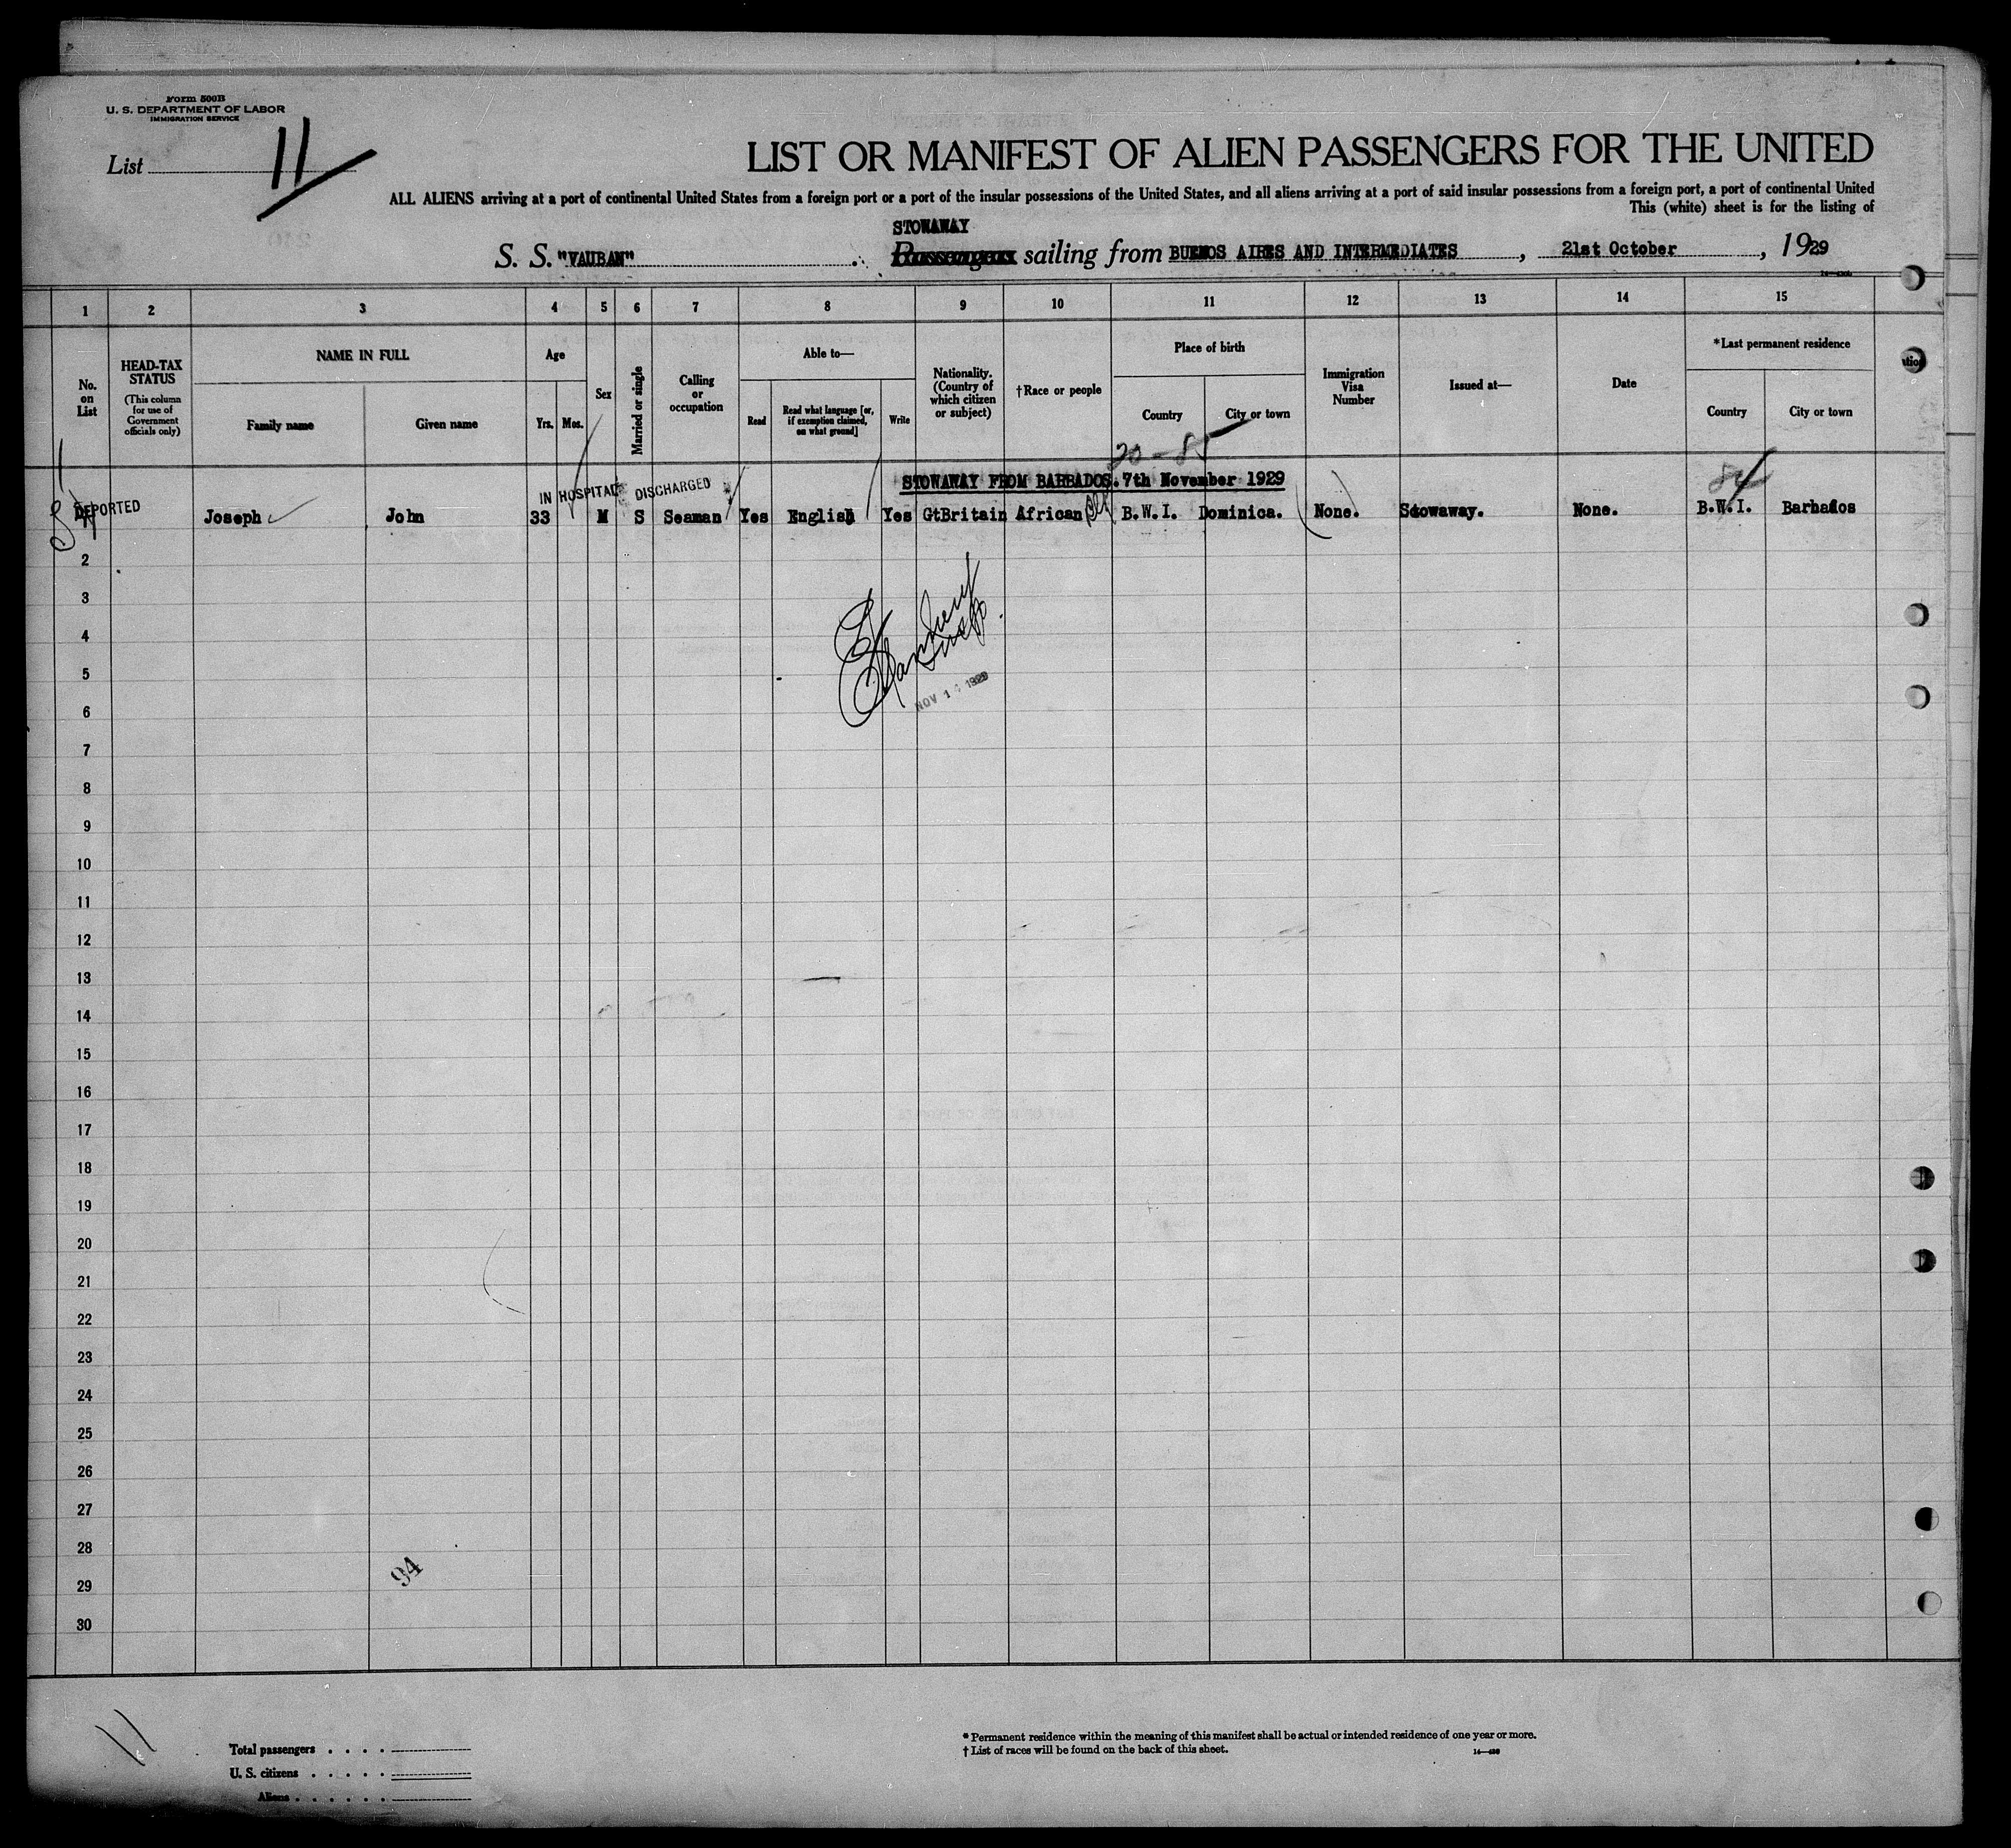 Form 500B
U. S. DEPARTMENT OF LABOR
IMMIGRATION SERVICE
List 11
LIST OR MANIFEST OF ALIEN PASSENGERS FOR THE UNITED
ALL ALIENS arriving at a port of continental United States from a foreign port or a port of the insular possessions of the United States, and all aliens arriving at a port of said insular possessions from a foreign port, a port of continental United
This (white) sheet is for the listing of
STOWAWAY
S. S. "VAUBAN" Passengers sailing from BUENOS AIRES AND INTERMEDIATES, 21st October, 1929
1 2 3 4 5 6 7 8 9 10 11 12 13 14 15
No. on List
HEAD-TAX STATUS
(This column for use of Government officials only)
NAME IN FULL
Family name
Given name
Age
Yrs.
Mos.
Sex
Married or single
Calling or occupation
Able to—
Read
Read what language [or, if exemption claimed, on what ground]
Write
Nationality. (Country of which citizen or subject)
†Race or people
Place of birth
Country
City or town
Immigration Visa Number
Issued at—
Date
*Last permanent residence
Country
City or town
20-85
84
IN HOSPITAL DISCHARGED
STOWAWAY FROM BARBADOS. 7th November 1929
DEPORTED
Joseph John 33 M S Seaman Yes English Yes GtBritain African B.W.I. Dominica. None. Stowaway. None. B.W.I. Barbados
2
3
4
5
6
7
8
9
10
11
12
13
14
15
16
17
18
19
20
21
22
23
24
25
26
27
28
29
30
94
11
Total passengers
U. S. citizens
Aliens
* Permanent residence within the meaning of this manifest shall be actual or intended residence of one year or more.
† List of races will be found on the back of this sheet.